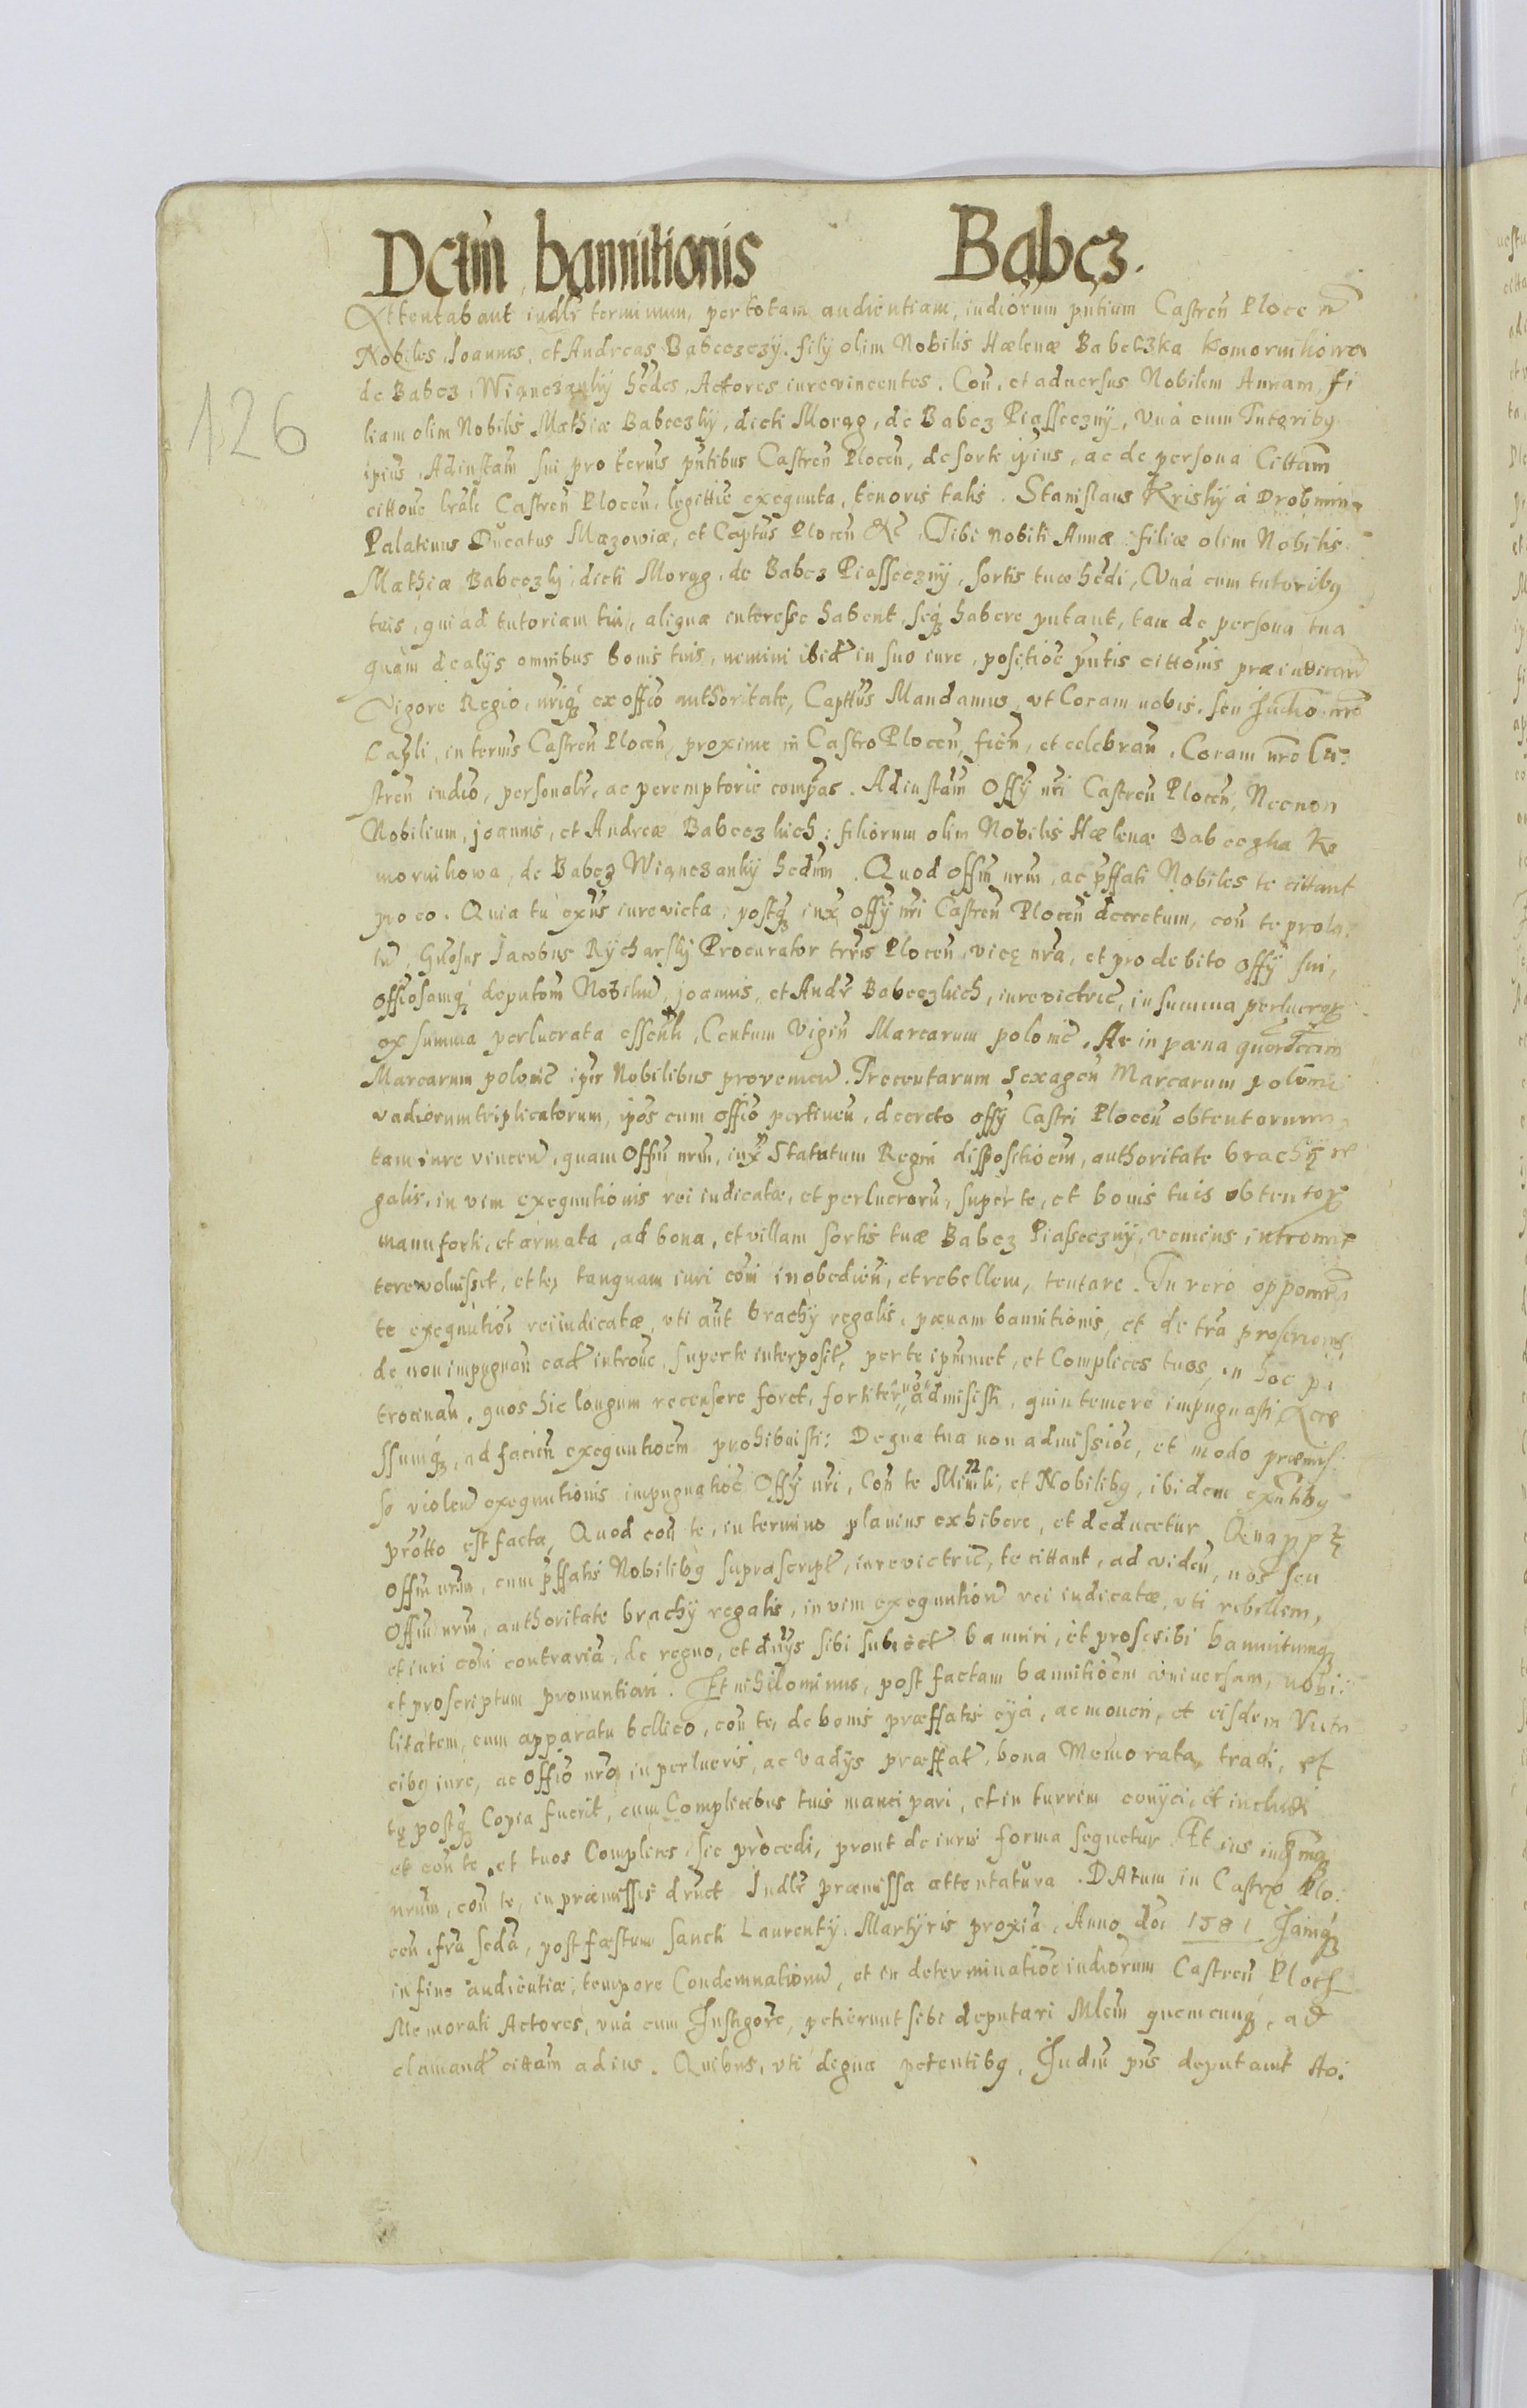 Dctm̃ bannitionis Babcz.
Attentabant iudlr̃ terminum, per totam audientiam, iudiorum pñtium Castreñ Ploceñ
Nobiles, Ioannes, et Andreas Babcczczy. filӱ olim Nobilis Hælenæ Babcczka Komornikowa
de Babcz, Wignczanky hẽdes, Actores iurevincentes. Coñ, et aduersus Nobilem Annam, fi
liam olim Nobilis Mathiæ Babeczky, dicti Morag, de Babcz Piasseczny, Vná cum Tutoribq
ipius, Ad instam̃ sui pro termis pñtibus Castreñ Ploceñ, de sorte ipius, ac de persona Cittam̃
cittone lr̃ale Castreñ Ploceñ, legittie exequuta, tenoris talis. Stanislaus Krisky á Drobnin
Palatinus Ducatus Mazowiæ, et Captus Ploceñ &c̃. Tibi nobili Annæ filiæ olim Nobilis
Mathiæ Babeczky, dicti Morag, de Babcz Piasseczny, sortis tuæ hẽdi, Vná cum tutoribq
tuis, qui ad tutoriam tui, aliqua interesse habent, seq́ habere putant, tan de persona tua
quàm de alӱs omnibus bonis tuis, nemini ibid̃ in suo iure, positioe pñtis cittonis præiudican̄
Vigore Regio, nr̃iq́ ex offio authoritate, Capttus Mandamus, vt Coram nobis, seu Iudio nr̃o
Capli, in termis Castreñ Ploceñ, proxime in Castro Ploceñ, fieñ, et celebrañ. Coram nr̃o Ca:
streñ iudio, personalr̃, ac peremptorie compas. Ad instam̃ Offӱ nr̃i Castreñ Ploceñ, Necnon
Nobilium, joannis, et Andreæ Babeczkich: filiorum olim Nobilis Hælenæ Babeczka Ko
mornikowa, de Babcz Wignczanky hẽdum. Quod offim nr̃m, ac pffati Nobiles te cittant
pro eo. Quia tu exñs iurevicta, postq́ iux̃ offӱ nr̃i Castreñ Ploceñ decretum, coñ te prola
tũ, Gñosus Iacobus Rycharsky Procurator trr̃is Ploceñ, vice nr̃a, et pro debito offӱ sui,
offiosamq́ deputom̃ Nobiliũ, joannis, et Andr̃ Babeczkich, iurevictric̃, in summa perlucror̃
ex summa perlucrata essentli, Centum Vigiñ Marcarum polonic̃, Ac in pæna quordecim
Marcarum polonic̃ ipis Nobilibus provenieñ. Trecentarum sexageñ Marcarum polonic
vadiorum triplicatorum, ipos cum offio pertineñ, decreto offӱ Castri Ploceñ obtentorum
tam iure vinceñ, quam Offim nr̃m, iux̃ Statutum Regni dispositioem, authoritate brachӱ re
galis, in vim exequutionis rei iudicatæ, et perlucrorũ, super te, et bonis tuis obtentor̃
manu forti, et armata, ad bona, et villam sortis tuæ Babcz Piasseczny, veniens intromit
tere voluisset, et te, tanquam iuri coӣ inobedieñ, et rebellem, tentare. Tu vero opponeñ
te exequutioi rei iudicatæ, vti aut̃ brachӱ regalis, pænam bannitionis, et de trr̃a proscriois,
de non impugnañ ead̃ introoe, super te interposit̃, per te ipsammet, et Complices tuos, in hoc pa
trocinañ, quos hic longum recensere foret, fortiter, nõ admisisti, quin temere impugnasti, Acce
ssumq́, ad facieñ exequutioem prohibuisti: De qua tua non admissioe, et modo præmis:
so violeñ exequutionis impugnatioe Offӱ nr̃i, Coñ te Minrli, et Nobilibq, ibidem exñtibq
protto est facta, Quod coñ te, in termino planius exhibere, et deducetur Qua ppt̃
offim nr̃m, cum pffatis Nobilibq suprascript̃, iurevictric̃, te cittant, ad videñ, nos seu
Offim nr̃m, authoritate brachӱ regalis, in vim exequutioñ rei iudicatæ, vti rebellem,
et iuri coӣ contrariã, de regno, et dñӱs sibi subiect̃ banniri, et proscribi bannitumq́
et proscriptum pronuntiari. Et nihilominus, post factam bannitioem vniuersam, nobi:
litatem, cum apparatu bellico, coñ te, de bonis præffatis eӱci, ac moueri, et eisdem Victri
cibq iure, ac offio nr̃o, in perlucris, ac vadӱs præffat̃, bona Memorata, tradi, et
te postq́ Copia fuerit, cum Complicibus tuis mancipari, et in turrim conӱci, et includi
et coñ te, et tuos Complices, sic procedi, prout de iuris forma sequetur. Et ius
nr̃um, coñ te, in præmissis duct̃ Iudlr̃ præmissa attentatura. DAtum in Castro Plo:
ceñ, fr̃a scdã, post fæstum Sancti Laurentӱ, Martyris proxiã, Anno doi 1581 Iamq́
in fine audientiæ, tempore Condemnationũ, et in determinatioe iudiorum Castreñ Ploceñ
Memorati Actores, vná cum Instigore, petierunt sibi deputari Mlem quemcunq́, ad
clamand̃ cittam̃ ad ius. Quibus, vti digna petentibq, Iudiũ pñs deputauit Ho:
126